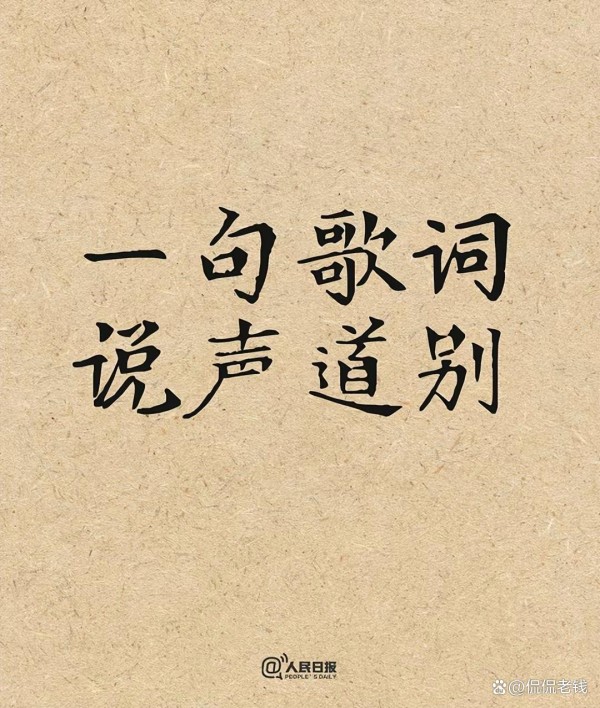 一句歌词
说声道别
@人民日报
PEOPLE'S DAILY
@侃侃老钱